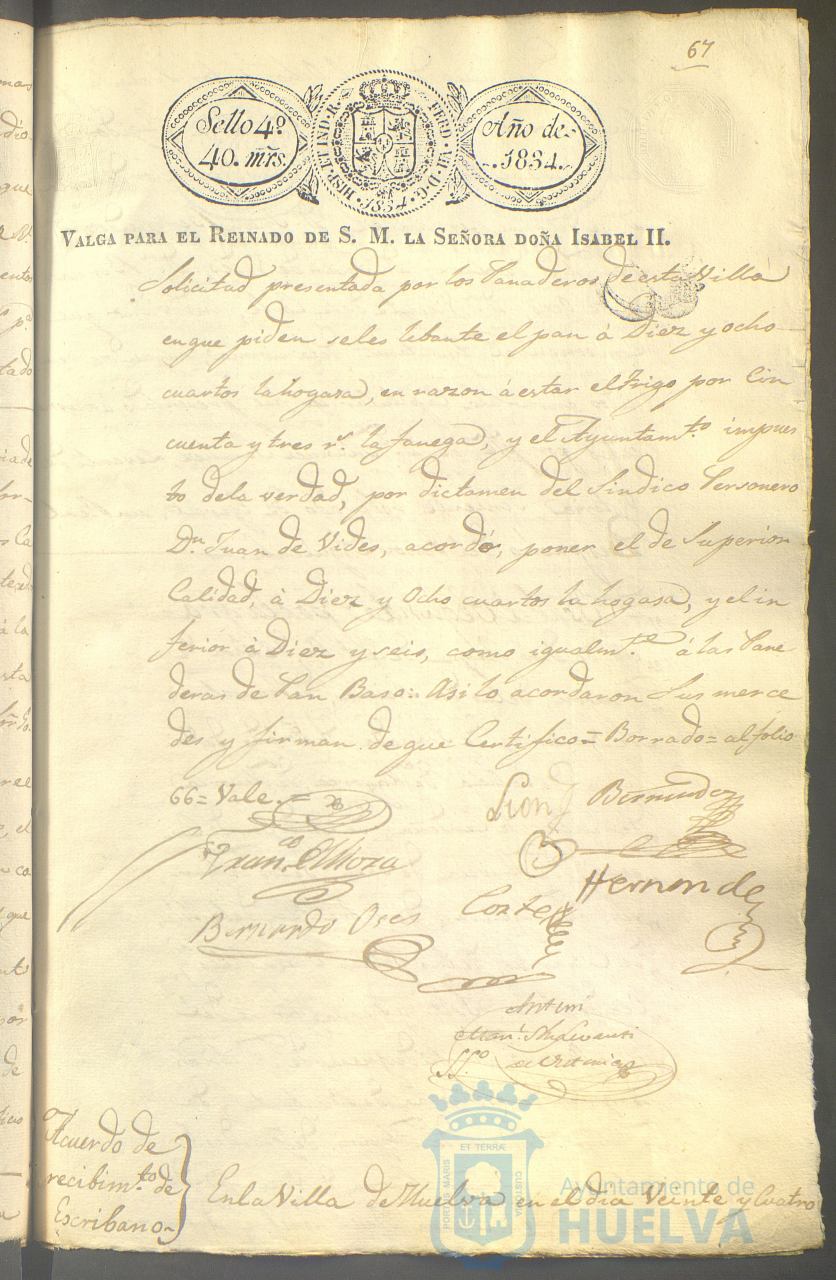 67
Sello 4º
40. mrs.
HISP. ET IND. R. FERD. VII. D. G.
1834.
Año de
1834.
VALGA PARA EL REINADO DE S. M. LA SEÑORA DOÑA ISABEL II.
Solicitud presentada por los Panaderos de esta Villa
en que piden se les lebante el pan á Diez y ocho
cuartos la hogasa, en razon á estar el trigo por Cin
cuenta y tres rs. la fanega, y el Ayuntamto. impues
to dela verdad, por dictamen del Sindico Personero
Dn. Juan de Vides, acordó, poner el de Superior
Calidad, á Diez y Ocho cuartos la hogasa, y el in
ferior á Diez y seis, como igualmte. á las Pane
deras de Pan Baso: Asi lo acordaron Sus merce
des y firman de que Certifico= Borrado= al folio
66= Vale.=
Leon Bermudez
Franco. Elliora
Hernandez
Bernardo Oses Cortes
Acuerdo de
recibimto. de
Escribano
En la Villa de Huelva en el dia Veinte y Cuatro
ET TERRÆ
PORTUS MARIS
CUSTODIA
Ayuntamiento de
HUELVA